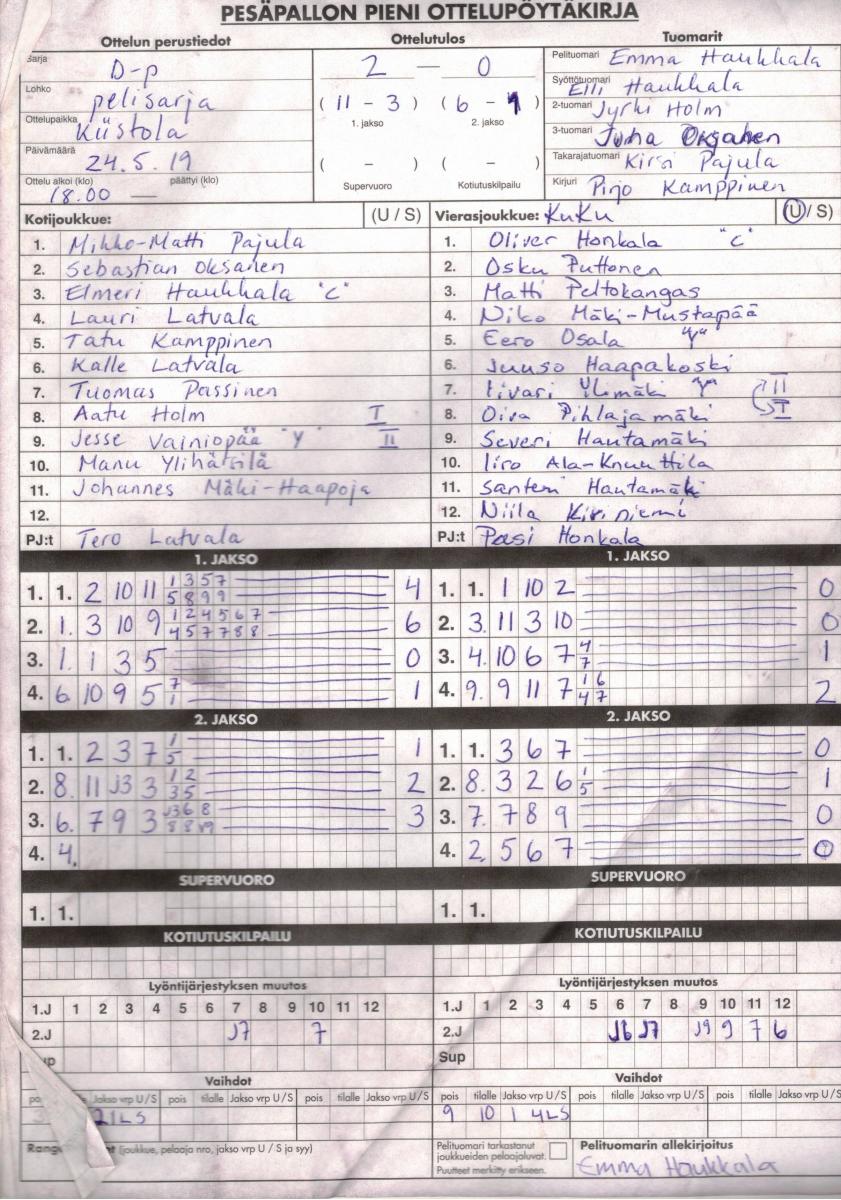 PESÄPALLON PIENI OTTELUPÖYTÄKIRJA
Ottelun perustiedot
Sarja D-p
Lohko pelisarja
Ottelupaikka Kiistola
Päivämäärä 24.5.19
Ottelu alkoi (klo) päättyi (klo)
18.00 —
Ottelutulos
2 — 0
(11 - 3) (6 - 1)
1. jakso 2. jakso
( - ) ( - )
Supervuoro Kotiutuskilpailu
Tuomarit
Pelituomari Emma Haukkala
Syöttötuomari Elli Haukkala
2-tuomari Jyrki Holm
3-tuomari Juha Oksanen
Takarajatuomari Kirsi Pajula
Kirjuri Pirjo Kamppinen
Kotijoukkue: (U / S)
1. Mikko-Matti Pajula
2. Sebastian Oksanen
3. Elmeri Haukkala "C"
4. Lauri Latvala
5. Tatu Kamppinen
6. Kalle Latvala
7. Tuomas Passinen
8. Aatu Holm I
9. Jesse Vainiopää "Y" II
10. Manu Ylihärsilä
11. Johannes Mäki-Haapoja
12.
PJ:t Tero Latvala
Vierasjoukkue: KuKu (U / S)
1. Oliver Honkala "C"
2. Osku Puttonen
3. Matti Peltokangas
4. Niko Mäki-Mustapää
5. Eero Osala
6. Juuso Haapakoski
7. Iivari Ylimäki II
8. Oiva Pihlajamäki I
9. Severi Hautamäki
10. Iiro Ala-Knuuttila
11. Santeri Hautamäki
12. Niila Kiviniemi
PJ:t Pasi Honkala
1. JAKSO
1. 1. 2 10 11 1 3 5 7 4
5 8 9 9
2. 1. 3 10 9 1 2 4 5 6 7 6
4 5 7 7 8 8
3. 1. 1 3 5 0
4. 6. 10 9 5 7 1
1
1. JAKSO
1. 1. 1 10 2 0
2. 3. 11 3 10 0
3. 4. 10 6 7 4 1
7
4. 9. 9 11 7 1 6 2
4 7
2. JAKSO
1. 1. 2 3 7 1 1
5
2. 8. 11 J3 3 1 2 2
3 5
3. 6. 7 9 3 J3 6 8 3
8 8 J9
4. 4.
2. JAKSO
1. 1. 3 6 7 0
2. 8. 3 2 6 1 1
5
3. 7. 7 8 9 0
4. 2. 5 6 7 0
SUPERVUORO
1. 1.
SUPERVUORO
1. 1.
KOTIUTUSKILPAILU
KOTIUTUSKILPAILU
Lyöntijärjestyksen muutos
1.J 1 2 3 4 5 6 7 8 9 10 11 12
2.J J7 7
Lyöntijärjestyksen muutos
1.J 1 2 3 4 5 6 7 8 9 10 11 12
2.J J6 J7 J9 9 7 6
Sup
Vaihdot
Jakso vrp U / S pois tilalle Jakso vrp U / S pois tilalle Jakso vrp U / S
2 1 L S
Vaihdot
pois tilalle Jakso vrp U / S pois tilalle Jakso vrp U / S pois tilalle Jakso vrp U / S
9 10 1 4LS
(joukkue, pelaaja nro, jakso vrp U / S ja syy)
Pelituomari tarkastanut
joukkueiden pelaajaluvat.
Puutteet merkitty erikseen.
Pelituomarin allekirjoitus
Emma Haukkala